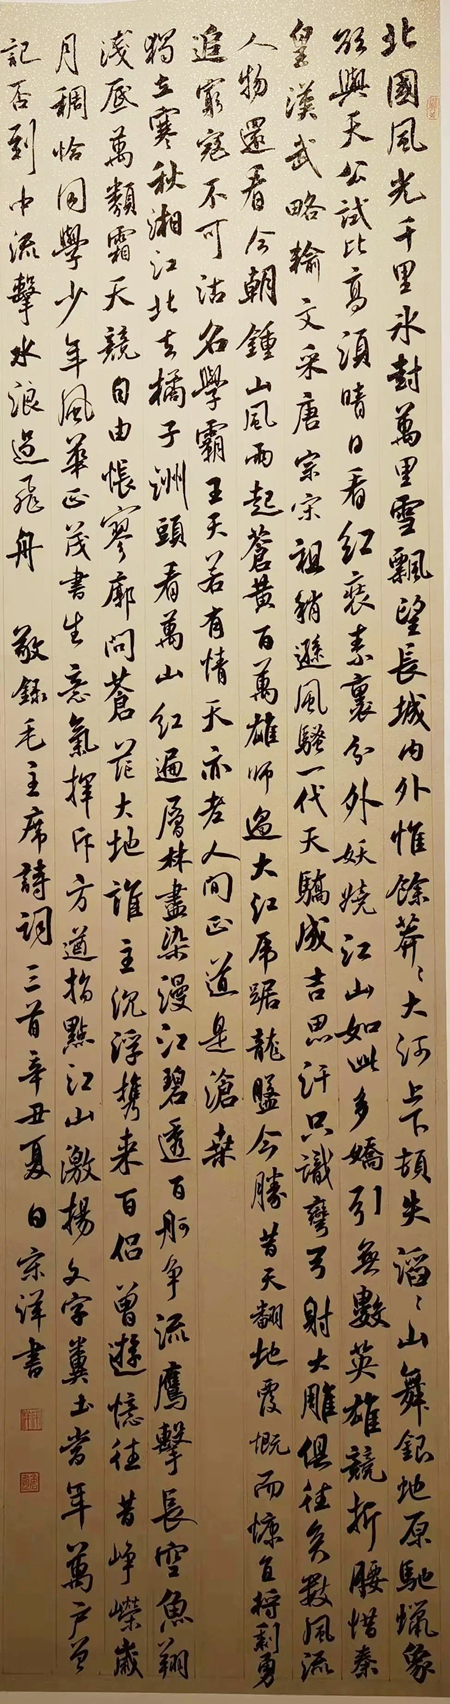 北國風光千里冰封萬里雪飄望長城内外惟餘莽〻大河上下頓失滔〻山舞銀虵原馳蠟象
欲與天公試比高須晴日看紅裝素裹分外妖嬈江山如此多嬌引無數英雄競折腰惜秦
皇漢武略輸文采唐宗宋祖稍遜風騷一代天驕成吉思汗只識彎弓射大雕俱往矣數風流
人物還看今朝鍾山風雨起蒼黄百萬雄師過大江虎踞龍盤今勝昔天翻地覆慨而慷宜將剩勇
追窮寇不可沽名學霸王天若有情天亦老人間正道是滄桑
獨立寒秋湘江北去橘子洲頭看萬山紅遍層林盡染漫江碧透百舸争流鷹擊長空魚翔
淺底萬類霜天競自由悵寥廓問蒼茫大地誰主沉浮攜來百侣曾遊憶往昔崢嶸歲
月稠恰同學少年風華正茂書生意氣揮斥方遒指點江山激揚文字糞土當年萬户曾
記否到中流擊水浪遏飛舟 敬録毛主席詩詞三首辛丑夏日宗洋書